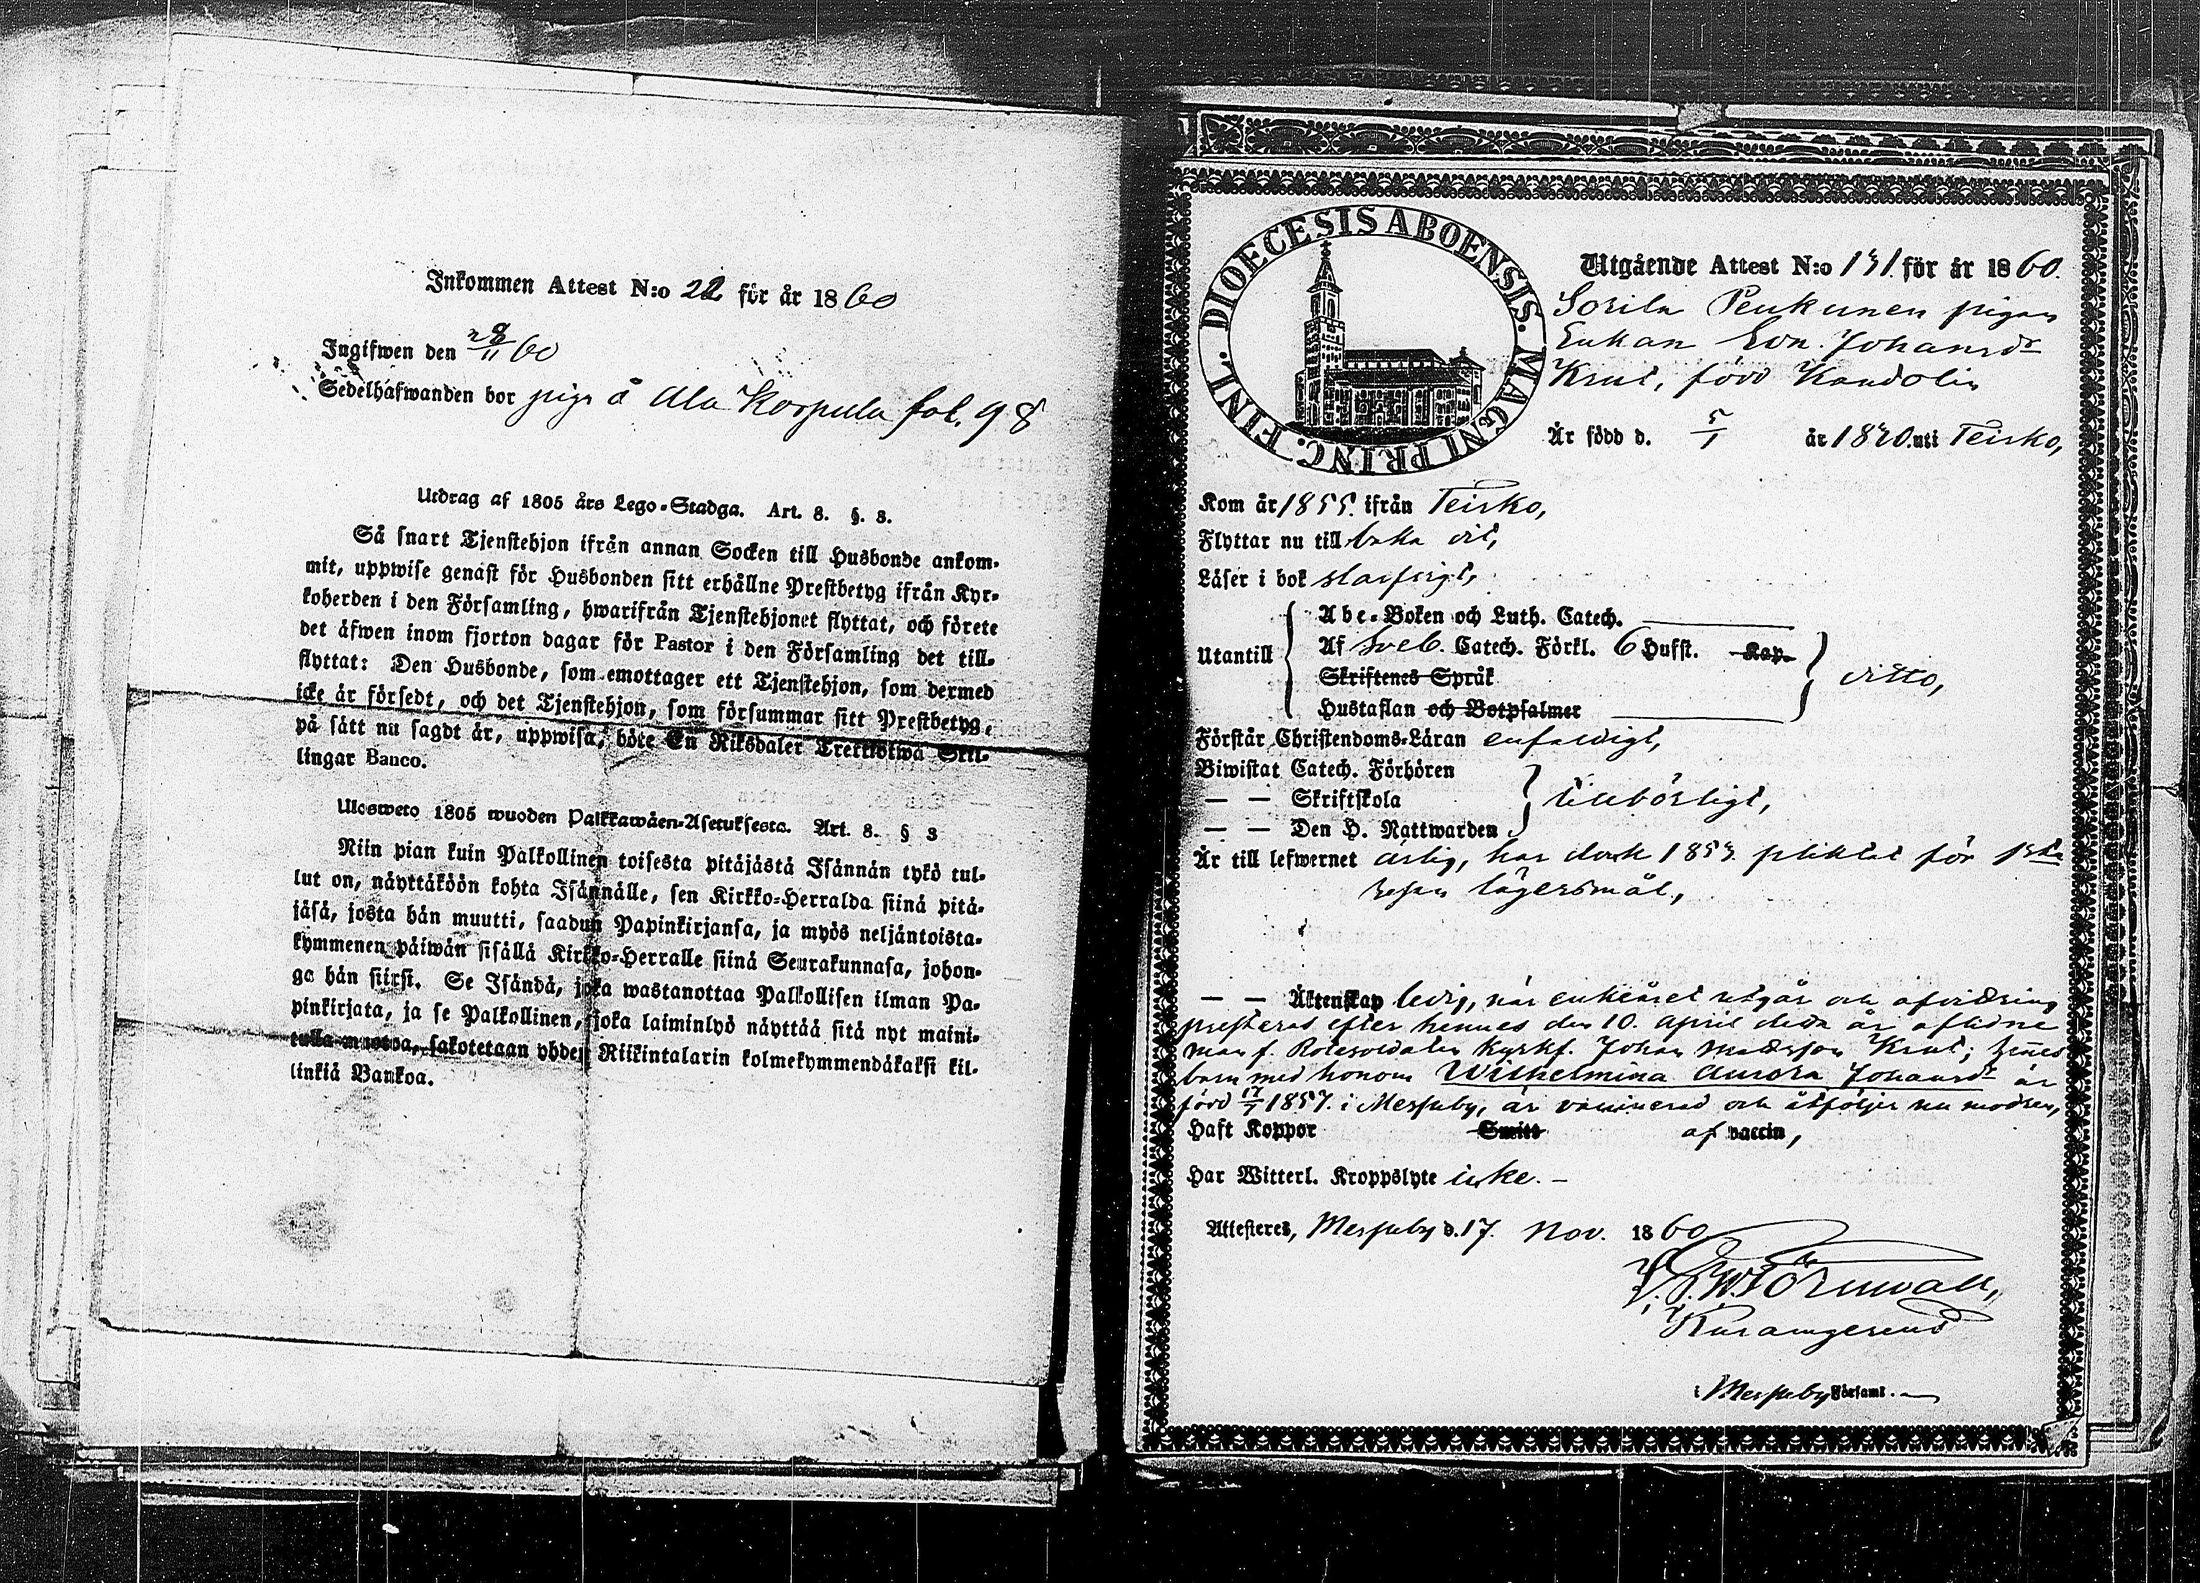 Inkommen Attest N:o 22 för år 1860
Ingifwen den 28/11 60
Sedelhafwanden bor piga å Ala Korpula fol. 98
Utdrag af 1805 års Lego-Stadga. Art. 8. §. 3.
Så snart Tjenstehjon ifrån annan Socken till Husbonde ankom-
mit, uppwise genast för Husbonden sitt erhållne Prestbetyg ifrån Kyr-
koherden i den Församling, hwarifrån Tjenstehjonet flyttat, och förete
det äfwen inom fjorton dagar för Pastor i den Församling det till-
flyttat: Den Husbonde, som emottager ett Tjenstehjon, som dermed
icke är försedt, och det Tjenstehjon, som försummar sitt Prestbetyg,
på sätt nu sagdt är, uppwisa, böte En Riksdaler Trettiotwå Skil-
lingar Banco.
Ulosweto 1805 wuoden Palkkawäen-Asetuksesta. Art. 8. § 3
Niin pian kuin Palkollinen toisesta pitäjästä Isännän tykö tul-
lut on, näyttäköön kohta Isännälle, sen Kirkko-Herralda siinä pitä-
jäsä, josta hän muutti, saadun Papinkirjansa, ja myös neljäntoista-
kymmenen päiwän sisällä Kirkko-Herralle siinä Seurakunnasa, johon-
ga hän siirsi. Se Isändä, joka wastanottaa Palkollisen ilman Pa-
pinkirjata, ja se Palkollinen, joka laiminlyö näyttää sitä nyt maini-
tulla muotoa, sakotetaan yhden Riikintalarin kolmekymmendäkaksi kil-
linkiä Bankoa.
DIOECESIS ABOENSIS. MAGNI PRINC. FINL.
Utgående Attest N:o 131 för år 1860.
Sorila Penkunen pigan
Enkan Eva Johansdr
Krut, född Kandolin
Är född d. 5/1 år 1820 uti Teisko,
Kom år 1855 ifrån Teisko,
Flyttar nu till baka dit,
Läser i bok slarfrigt,
Utantill
Abc-Boken och Luth. Catech.
Af Sveb. Catech. Förkl. 6 Hufst. Kap.
Skriftenes Språk
Hustaflan och Botpsalmer
ditto,
Förstår Christendoms-Läran enfaldigt,
Biwistat Catech. Förhören
— — Skriftskola
— — Den H. Nattwarden
tillbörligt,
Är till lefwernet ärlig, har dock 1853 pliktat för 1sta
resan lägersmål,
— — Äktenskap ledig, när enkeåret utgår och afvittring
presterad efter hennes den 10. April detta år aflidne
man f. Rotesoldaten Kyrkf. Johan Mattsson Krut;
barn med honom Wilhelmina Aurora Johansdr är
född 17/5 1857. i Messuby, är vaccinerad och åtföljer nu modren,
Haft Koppor Smitt af vaccin,
Har Witterl. Kroppslyte icke. —
Attesteres, Messuby d. 17. Nov. 1860
Törnwall,
i Messuby Församl.